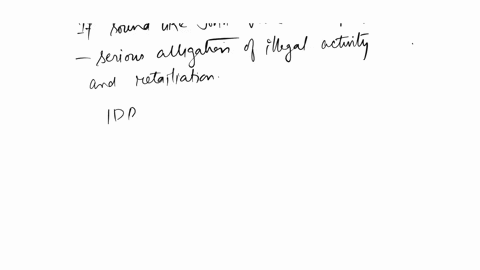 It sound like
— serious allegation of illegal activity
and retailiation.
IDD